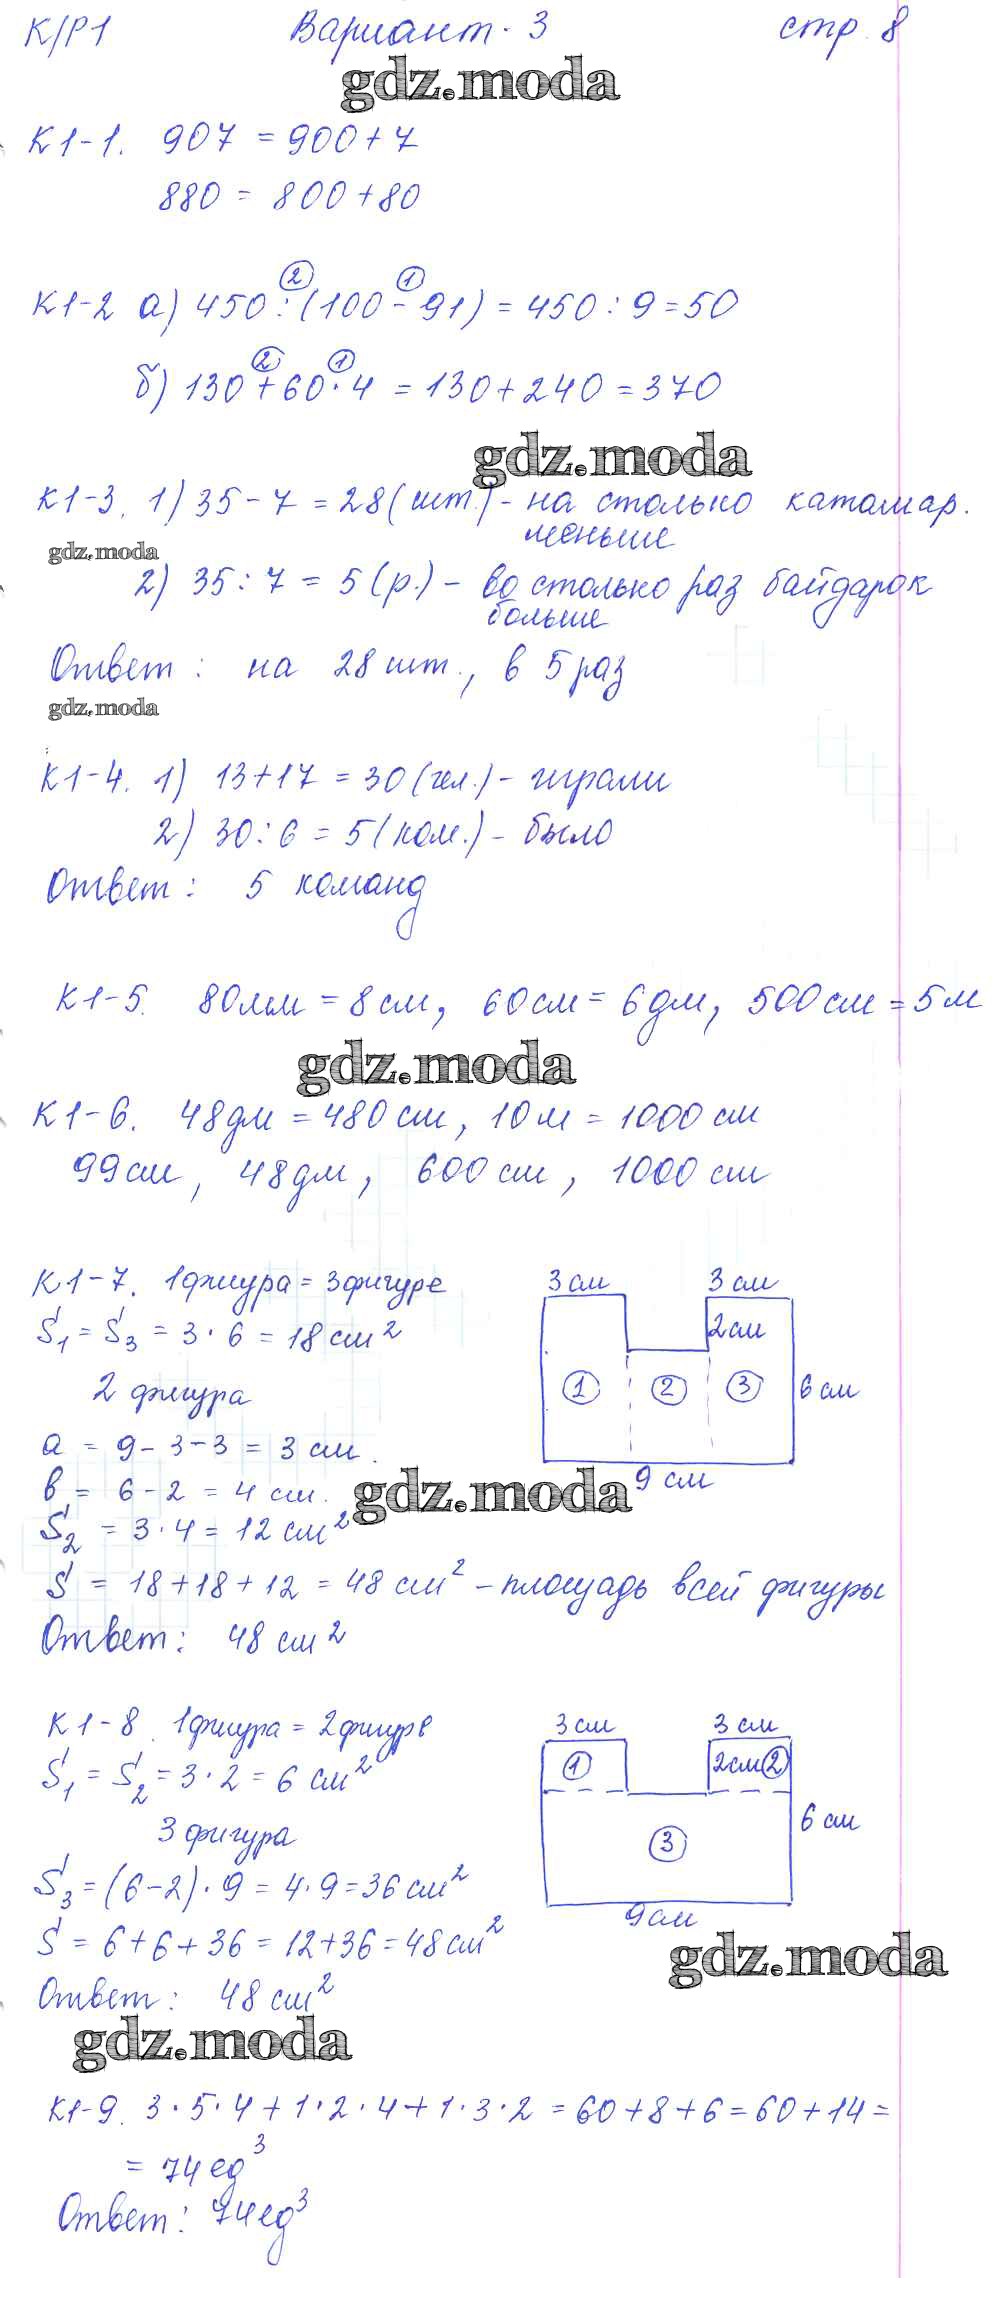 К/Р1 Вариант 3 стр. 8
gdz.moda
К1-1. 907 = 900 + 7
880 = 800 + 80
2 1
К1-2 а) 450 : (100 - 91) = 450 : 9 = 50
2 1
б) 130 + 60 · 4 = 130 + 240 = 370
gdz.moda
К1-3. 1) 35 - 7 = 28 (шт.) - на столько катамар.
меньше
gdz.moda
2) 35 : 7 = 5 (р.) - во столько раз байдарок
больше
Ответ: на 28 шт., в 5 раз
gdz.moda
К1-4. 1) 13 + 17 = 30 (чел.) - играли
2) 30 : 6 = 5 (ком.) - было
Ответ: 5 команд
К1-5. 80 мм = 8 см, 60 см = 6 дм, 500 см = 5 м
gdz.moda
К1-6. 48 дм = 480 см, 10 м = 1000 см
99 см, 48 дм, 600 см, 1000 см
К1-7. 1 фигура = 3 фигуре
S₁ = S₃ = 3 · 6 = 18 см²
2 фигура
а = 9 - 3 - 3 = 3 см.
в = 6 - 2 = 4 см.
S₂ = 3 · 4 = 12 см²
3 см 3 см
2 см
1 2 3 6 см
9 см
gdz.moda
S = 18 + 18 + 12 = 48 см² - площадь всей фигуры
Ответ: 48 см²
К1-8. 1 фигура = 2 фигуре
S₁ = S₂ = 3 · 2 = 6 см²
3 фигура
S₃ = (6 - 2) · 9 = 4 · 9 = 36 см²
S = 6 + 6 + 36 = 12 + 36 = 48 см²
Ответ: 48 см²
3 см 3 см
1 2 см 2
6 см
3
9 см
gdz.moda
gdz.moda
К1-9. 3 · 5 · 4 + 1 · 2 · 4 + 1 · 3 · 2 = 60 + 8 + 6 = 60 + 14 =
= 74 ед³
Ответ: 74 ед³